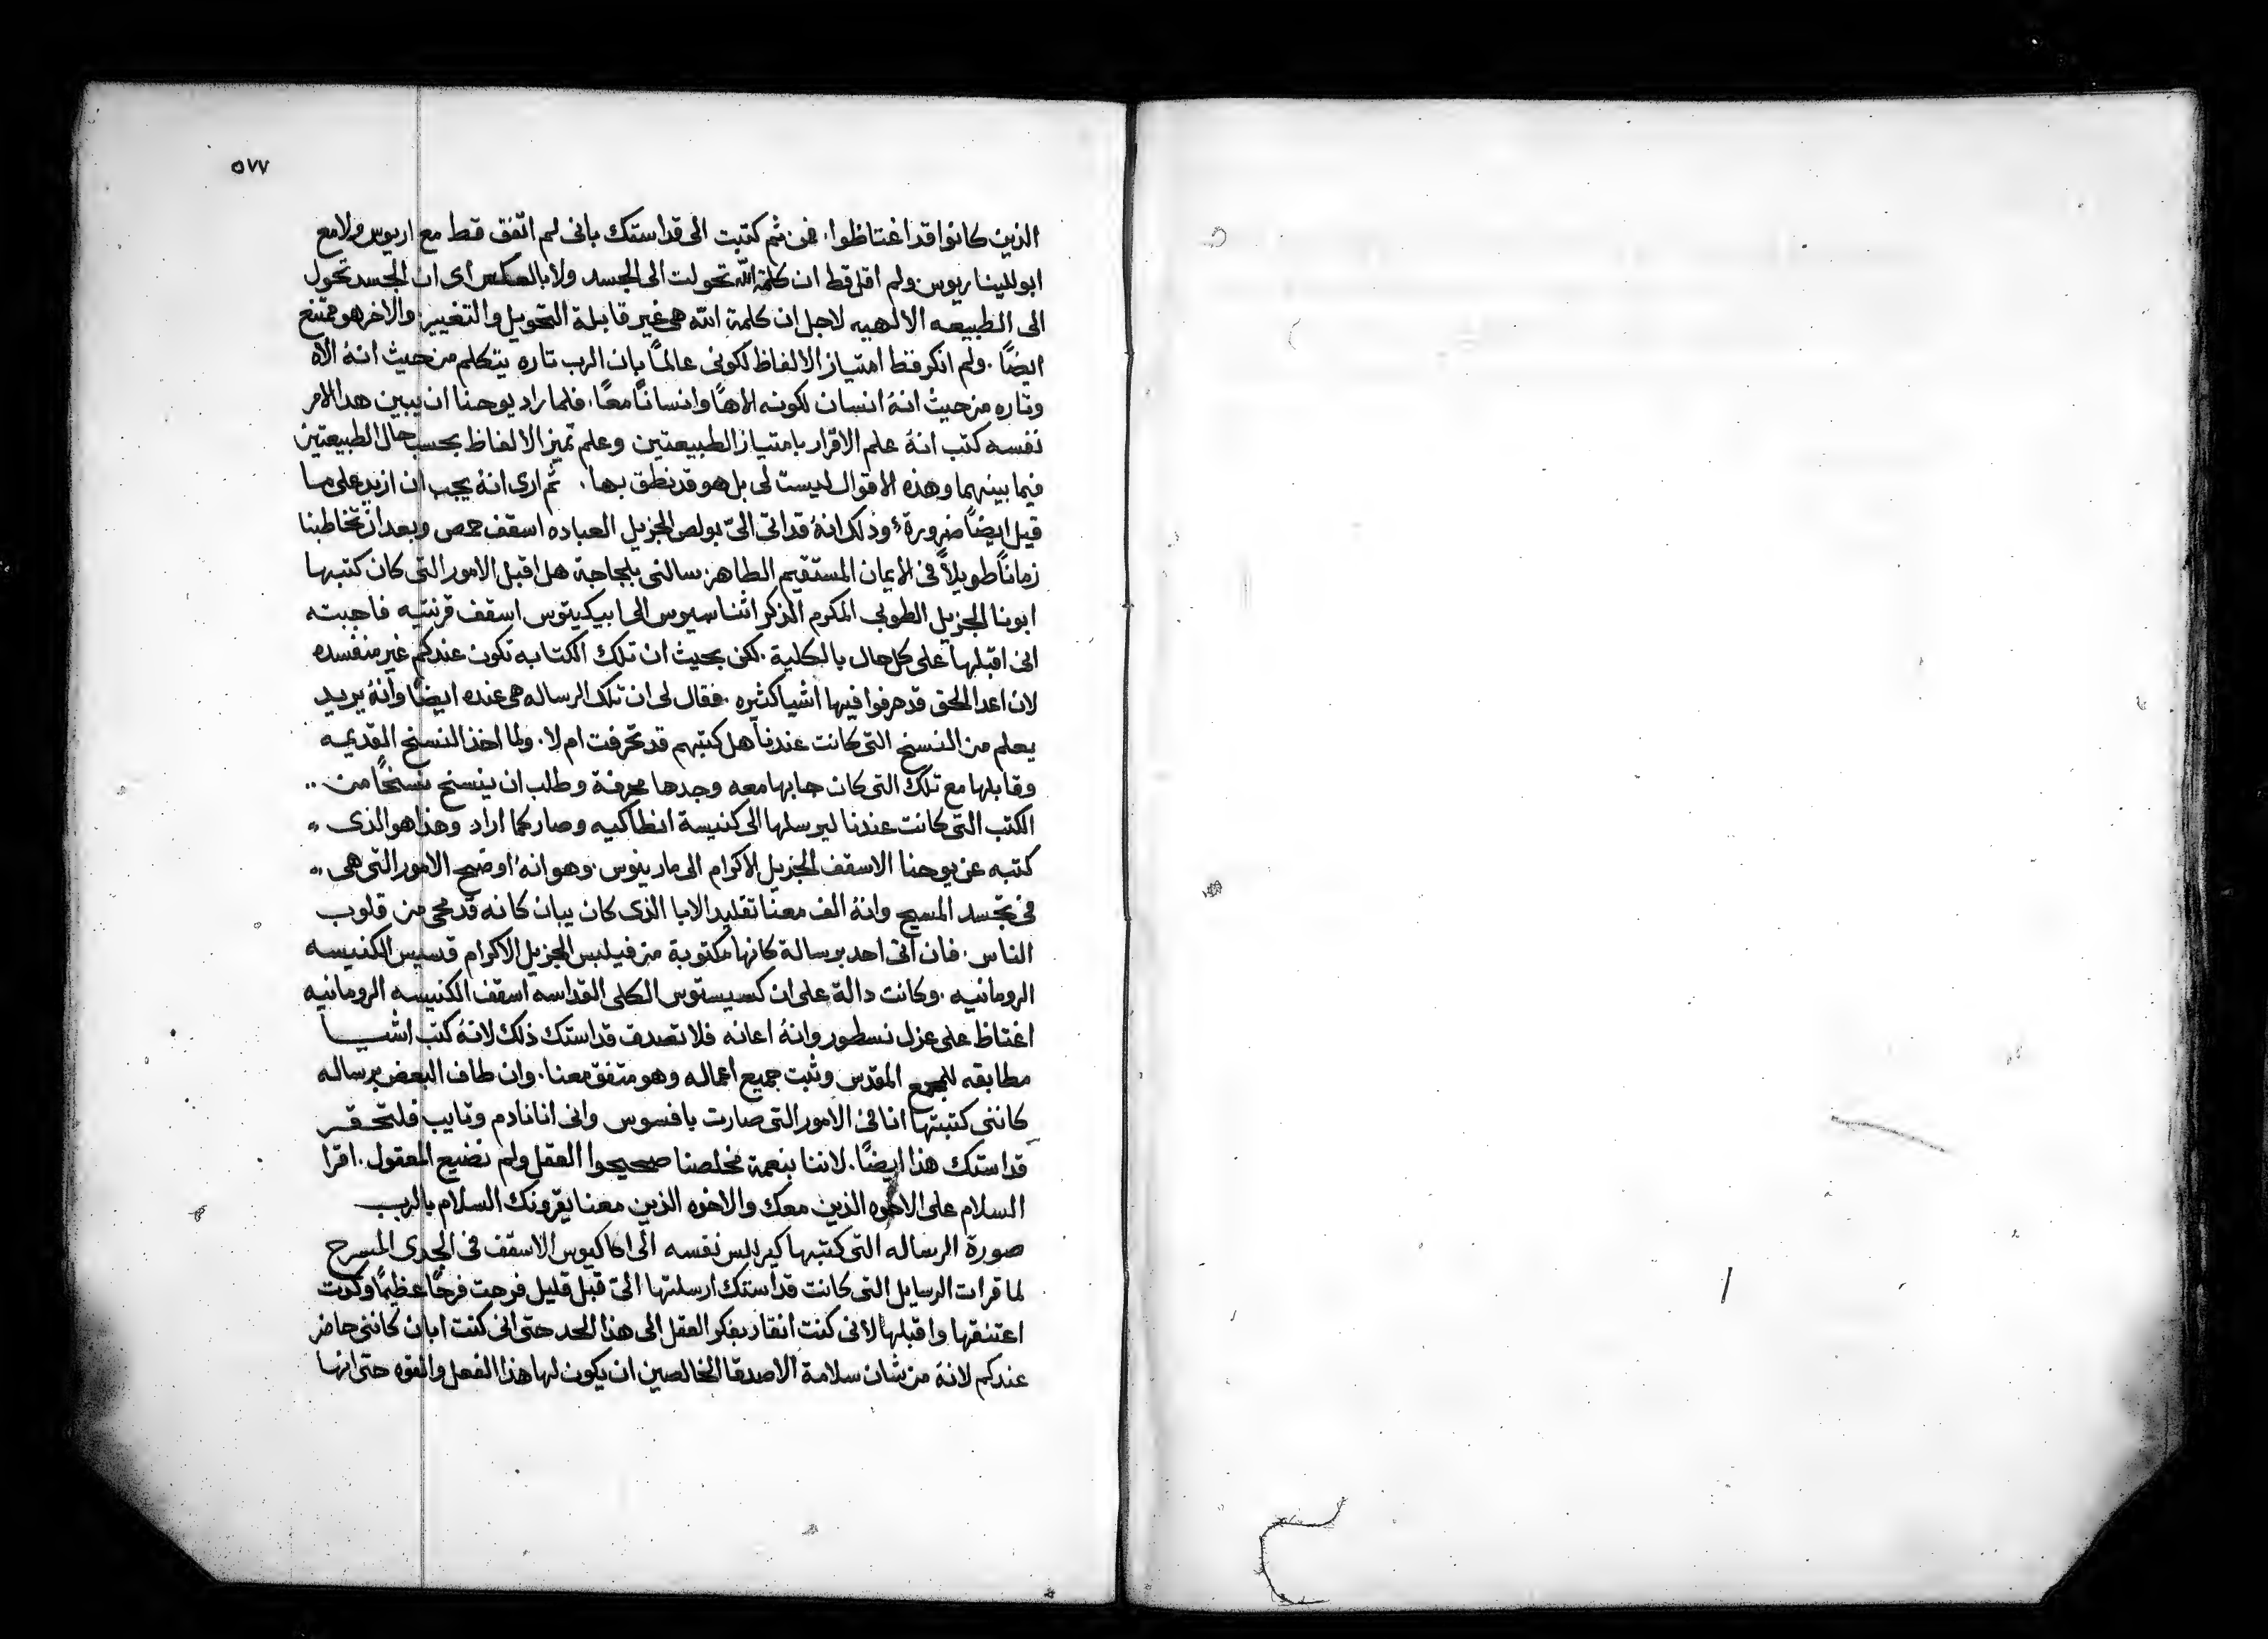 ٥٧٧
الذين كانوا قد اغتاظوا. فمن ثم كتبت الى قداستك بانى لم اتفق قط مع اريوس ولا مع
ابوللیناريوس ولم اقل قط ان كلمة الله تحولت الى الجسد ولا بالعكس اى ان الجسد تحول
الى الطبيعه الالهيه لاجل ان كلمة الله هى غير قابلة التحويل والتغيير. والاخر هو ممتنع
ايضًا. ولم انكر قط امتياز الالفاظ لكونى عالمًا بان الرب تاره يتكلم من حيث انهُ الاه
وتاره من حيث انهُ انسان لكونه الاهًا وانسانًا معًا. فلما راد يوحنا ان يبين هدا الامر
نفسه كتب انهُ علم الاقرار بامتياز الطبيعتين وعلم تميز الالفاظ بحسب حال الطبيعتين
فيما بينهما وهذه الاقوال ليست لى بل هو قد نطق بها. ثم ارى انهُ يجب ان ازيد على ما
قيل ايضًا ضرورةً وذلك انهُ قد اتى الىّ بولص الجزيل العباده اسقف حمص وبعد ان تخاطبنا
زمانًا طويلاً فى الايمان المستقيم الطاهر سالنى بلجاجة هل اقبل الامور التى كان كتبها
ابونا الجزيل الطوبى المكرم الذكر اثناسيوس الى ابيكيتوس اسقف قرنتيه فاجبته
انى اقبلها على كل حال بالكلية. لكن بحيث ان تلك الكتابه تكون عندكم غير منفسده
لان اعدا الحق قد حرفوا فيها اشيا كثيره. فقال لى ان تلك الرساله هى عنده ايضًا وانهُ يريد
يعلم من النسخ التى كانت عندنا هل كتبهم قد تحرفت ام لا. ولما اخذ النسخ القديمه
وقابلها مع تلك التى كان جابها معه وجدها محرفة وطلب ان ينسخ نسخًا من ..
الكتب التى كانت عندنا ليرسلها الى كنيسة انطاكيه وصار كما اراد وهذا هو الذى
كتبه عن يوحنا الاسقف الجزيل الاكرام الى مارينوس. وهو انهُ اوضح الامور التى هى
فى تجسد المسيح وانهُ الف معنا تقليد الابا الذى كان يبان كانه قد محى من قلوب
الناس. فان اتى احد برسالة كانها مكتوبة من فيلبس الجزيل الاكرام قسيس الكنيسه
الرومانيه. وكانت دالة على ان كسيستوس الكلى القداسه اسقف الكنيسه الرومانيه
اغتاظ على عزل نسطور وانهُ اعانه فلا تصدق قداستك ذلك لانهُ كتب اشيا
مطابقه للمجمع المقدس وثبت جميع اعماله وهو متفق معنا. وان طاف البعض برساله
كاننى كتبتها انا فى الامور التى صارت بافسوس وانى انا نادم وتايب فلتحقر
قداستك هذا ايضًا. لاننا بنعمة مخلصنا صحيحوا العقل ولم نضيع المعقول. اقرا
السلام على الاخوه الذين معك والاخوه الذين معنا يقرونك السلام بالرب
صورة الرساله التى كتبها كيرللس نفسه الى اكاكيوس الاسقف فى الجدى المسرح
لما قرات الرسايل التى كانت قداستك ارسلتها الىّ قبل قليل فرحت فرحًا عظيمًا وكدت
اعتنقها واقبلها لانى كنت انقاد بفكر العقل الى هذا الحد حتى انى كنت ابان كاننى حاضر
عندكم لانهُ من شان سلامة الاصدقا الخالصين ان يكون لها هذا الفعل والقوه حتى انها